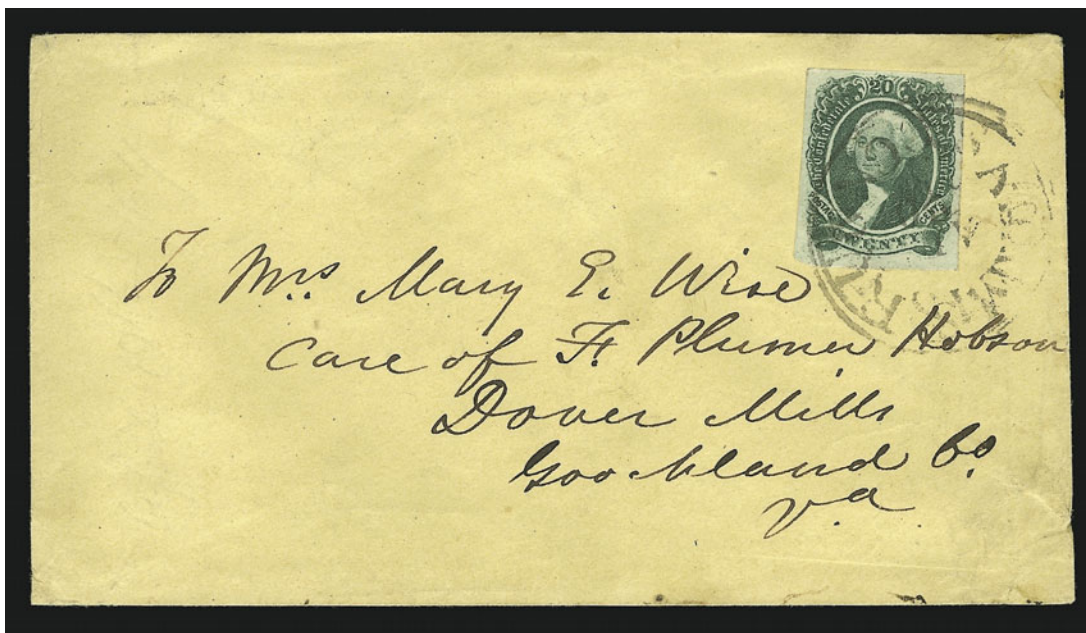 20
The Confederate States of America
POSTAGE CENTS
TWENTY
To Mrs Mary E. Wise
Care of F. Plumer Hobson
Dover Mills
Goochland Co
Va